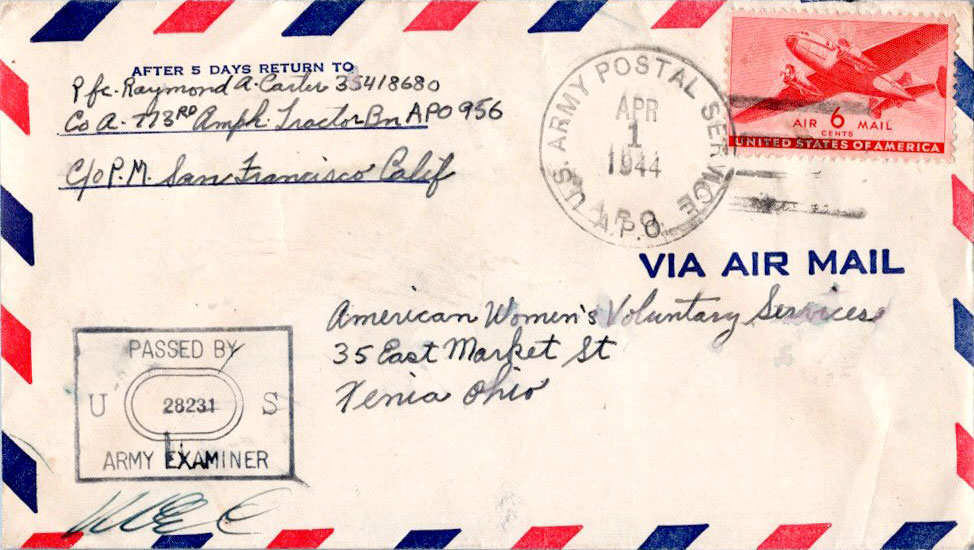 AFTER 5 DAYS RETURN TO
Pfc. Raymond A. Carter 35418680
Co A. 773RD Amph. Tractor Bn APO 956
c/o P.M. San Francisco Calif
U.S. ARMY POSTAL SERVICE
APR
1
1944
A.P.O.
AIR 6 MAIL
CENTS
UNITED STATES OF AMERICA
VIA AIR MAIL
American Women's Voluntary Services
35 East Market St
Xenia Ohio
PASSED BY
U 28231 S
ARMY EXAMINER